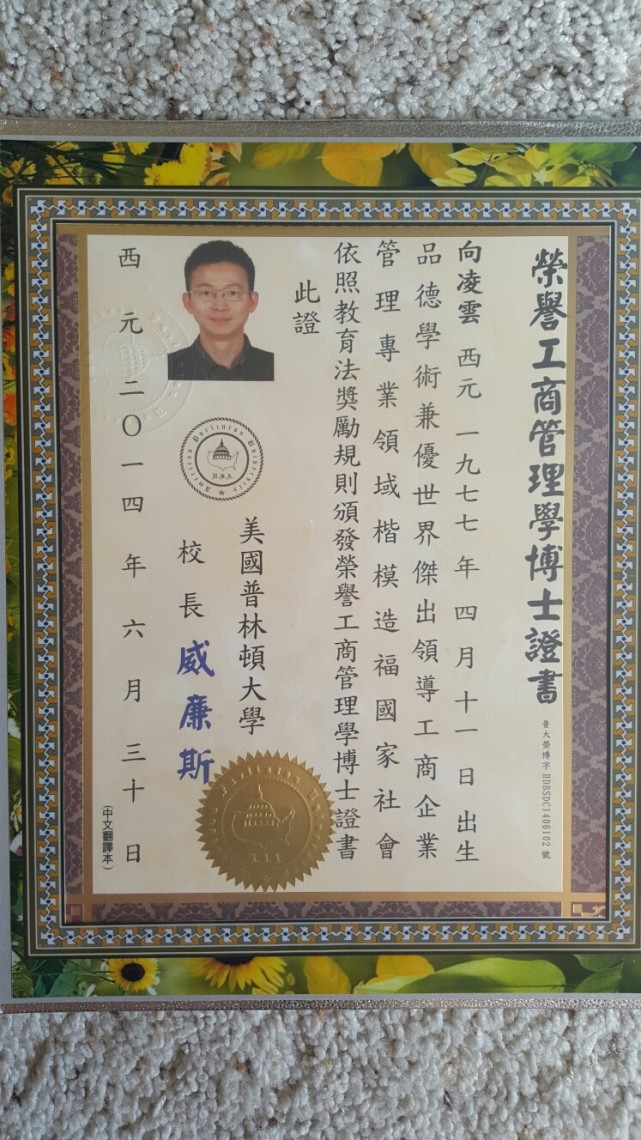 榮譽工商管理學博士證書
普大榮博字 HDBSDC1406102 號
向凌雲 西元 一九七七 年 四 月 十一 日 出生
品德學術兼優世界傑出領導工商企業
管理專業領域楷模造福國家社會
依照教育法獎勵規則頒發榮譽工商管理學博士證書
此證
美國普林頓大學
校長 威廉斯
西元 二〇一四 年 六 月 三十 日
(中文翻譯本)